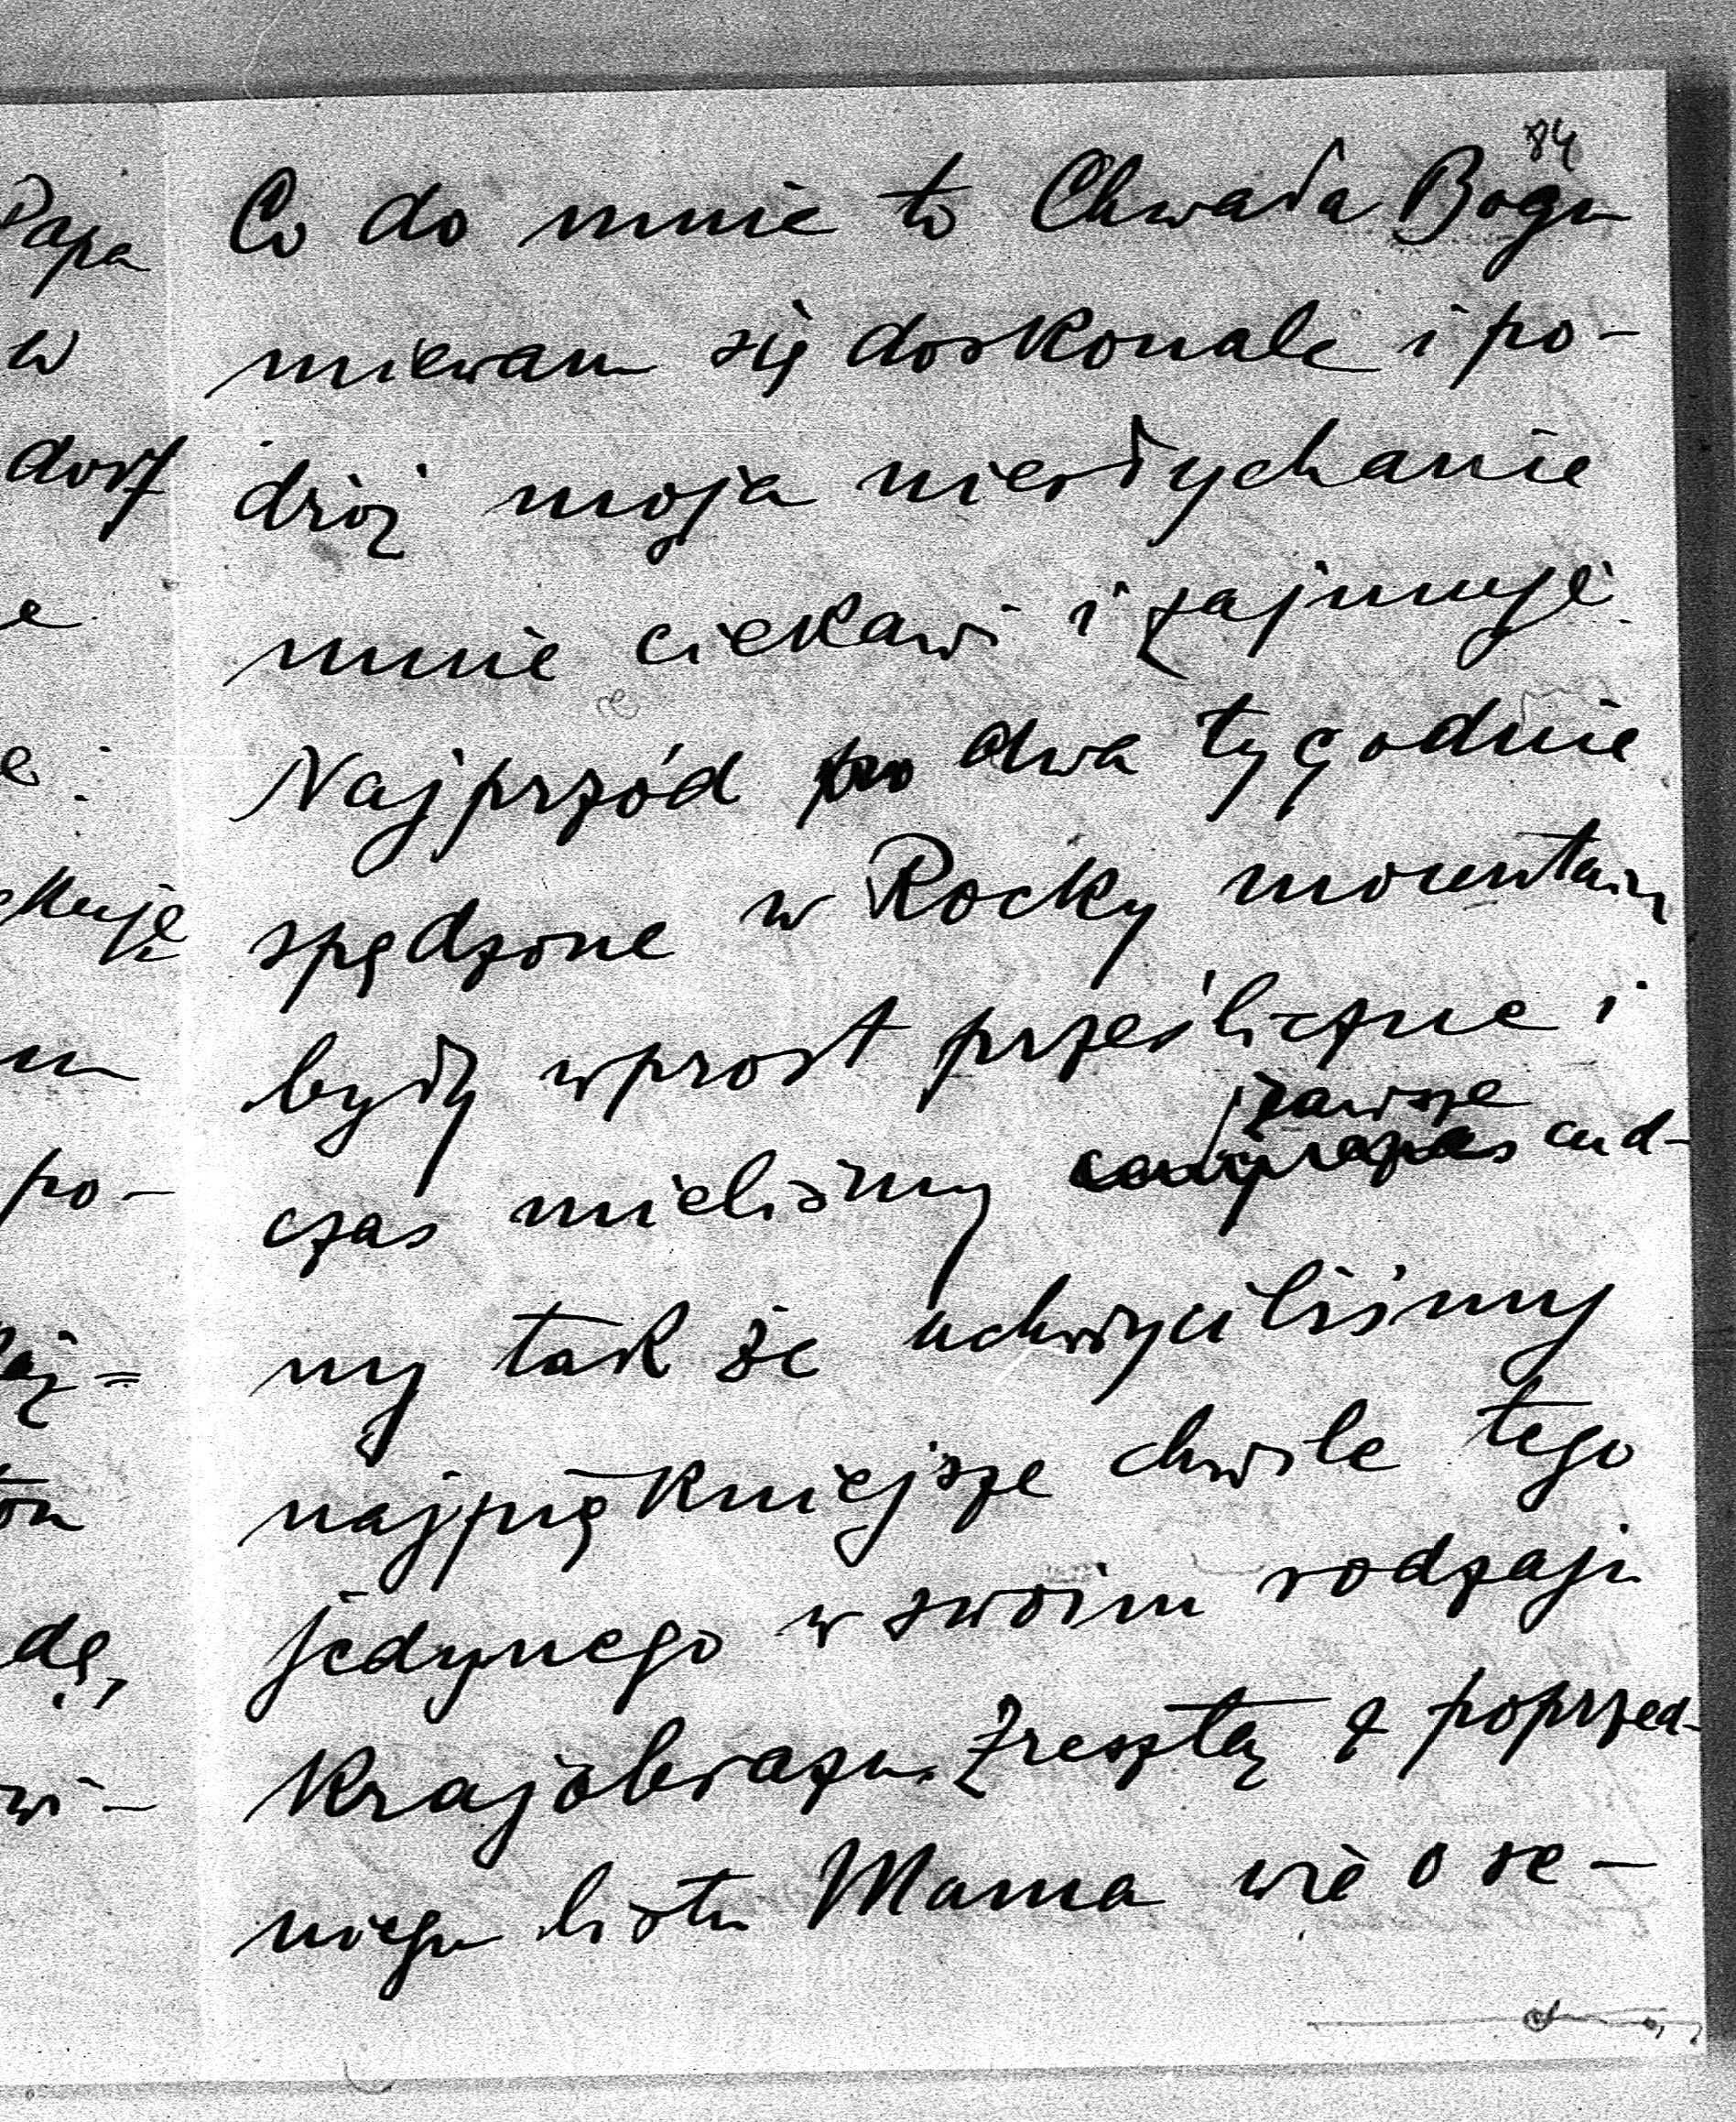 84
Papa
w
dorf
e
e.
ekuję
m
po-
aj=
ton
dę,
wi-
Co do mnie to Chwała Bogu
miewam się doskonale i po-
dróż moja niesłychanie
mnie ciekawi i zajmuje
Najprzód dwa tygodnie
spędzone w Rocky mountain
były wprost prześliczne i
zawsze
czas mieliśmy cud-
ny tak że uchwyciliśmy
najpiękniejsze chwile tego
jedynego w swoim rodzaju
krajobrazu. Zresztą z poprzed-
niego listu Mama wie o se-